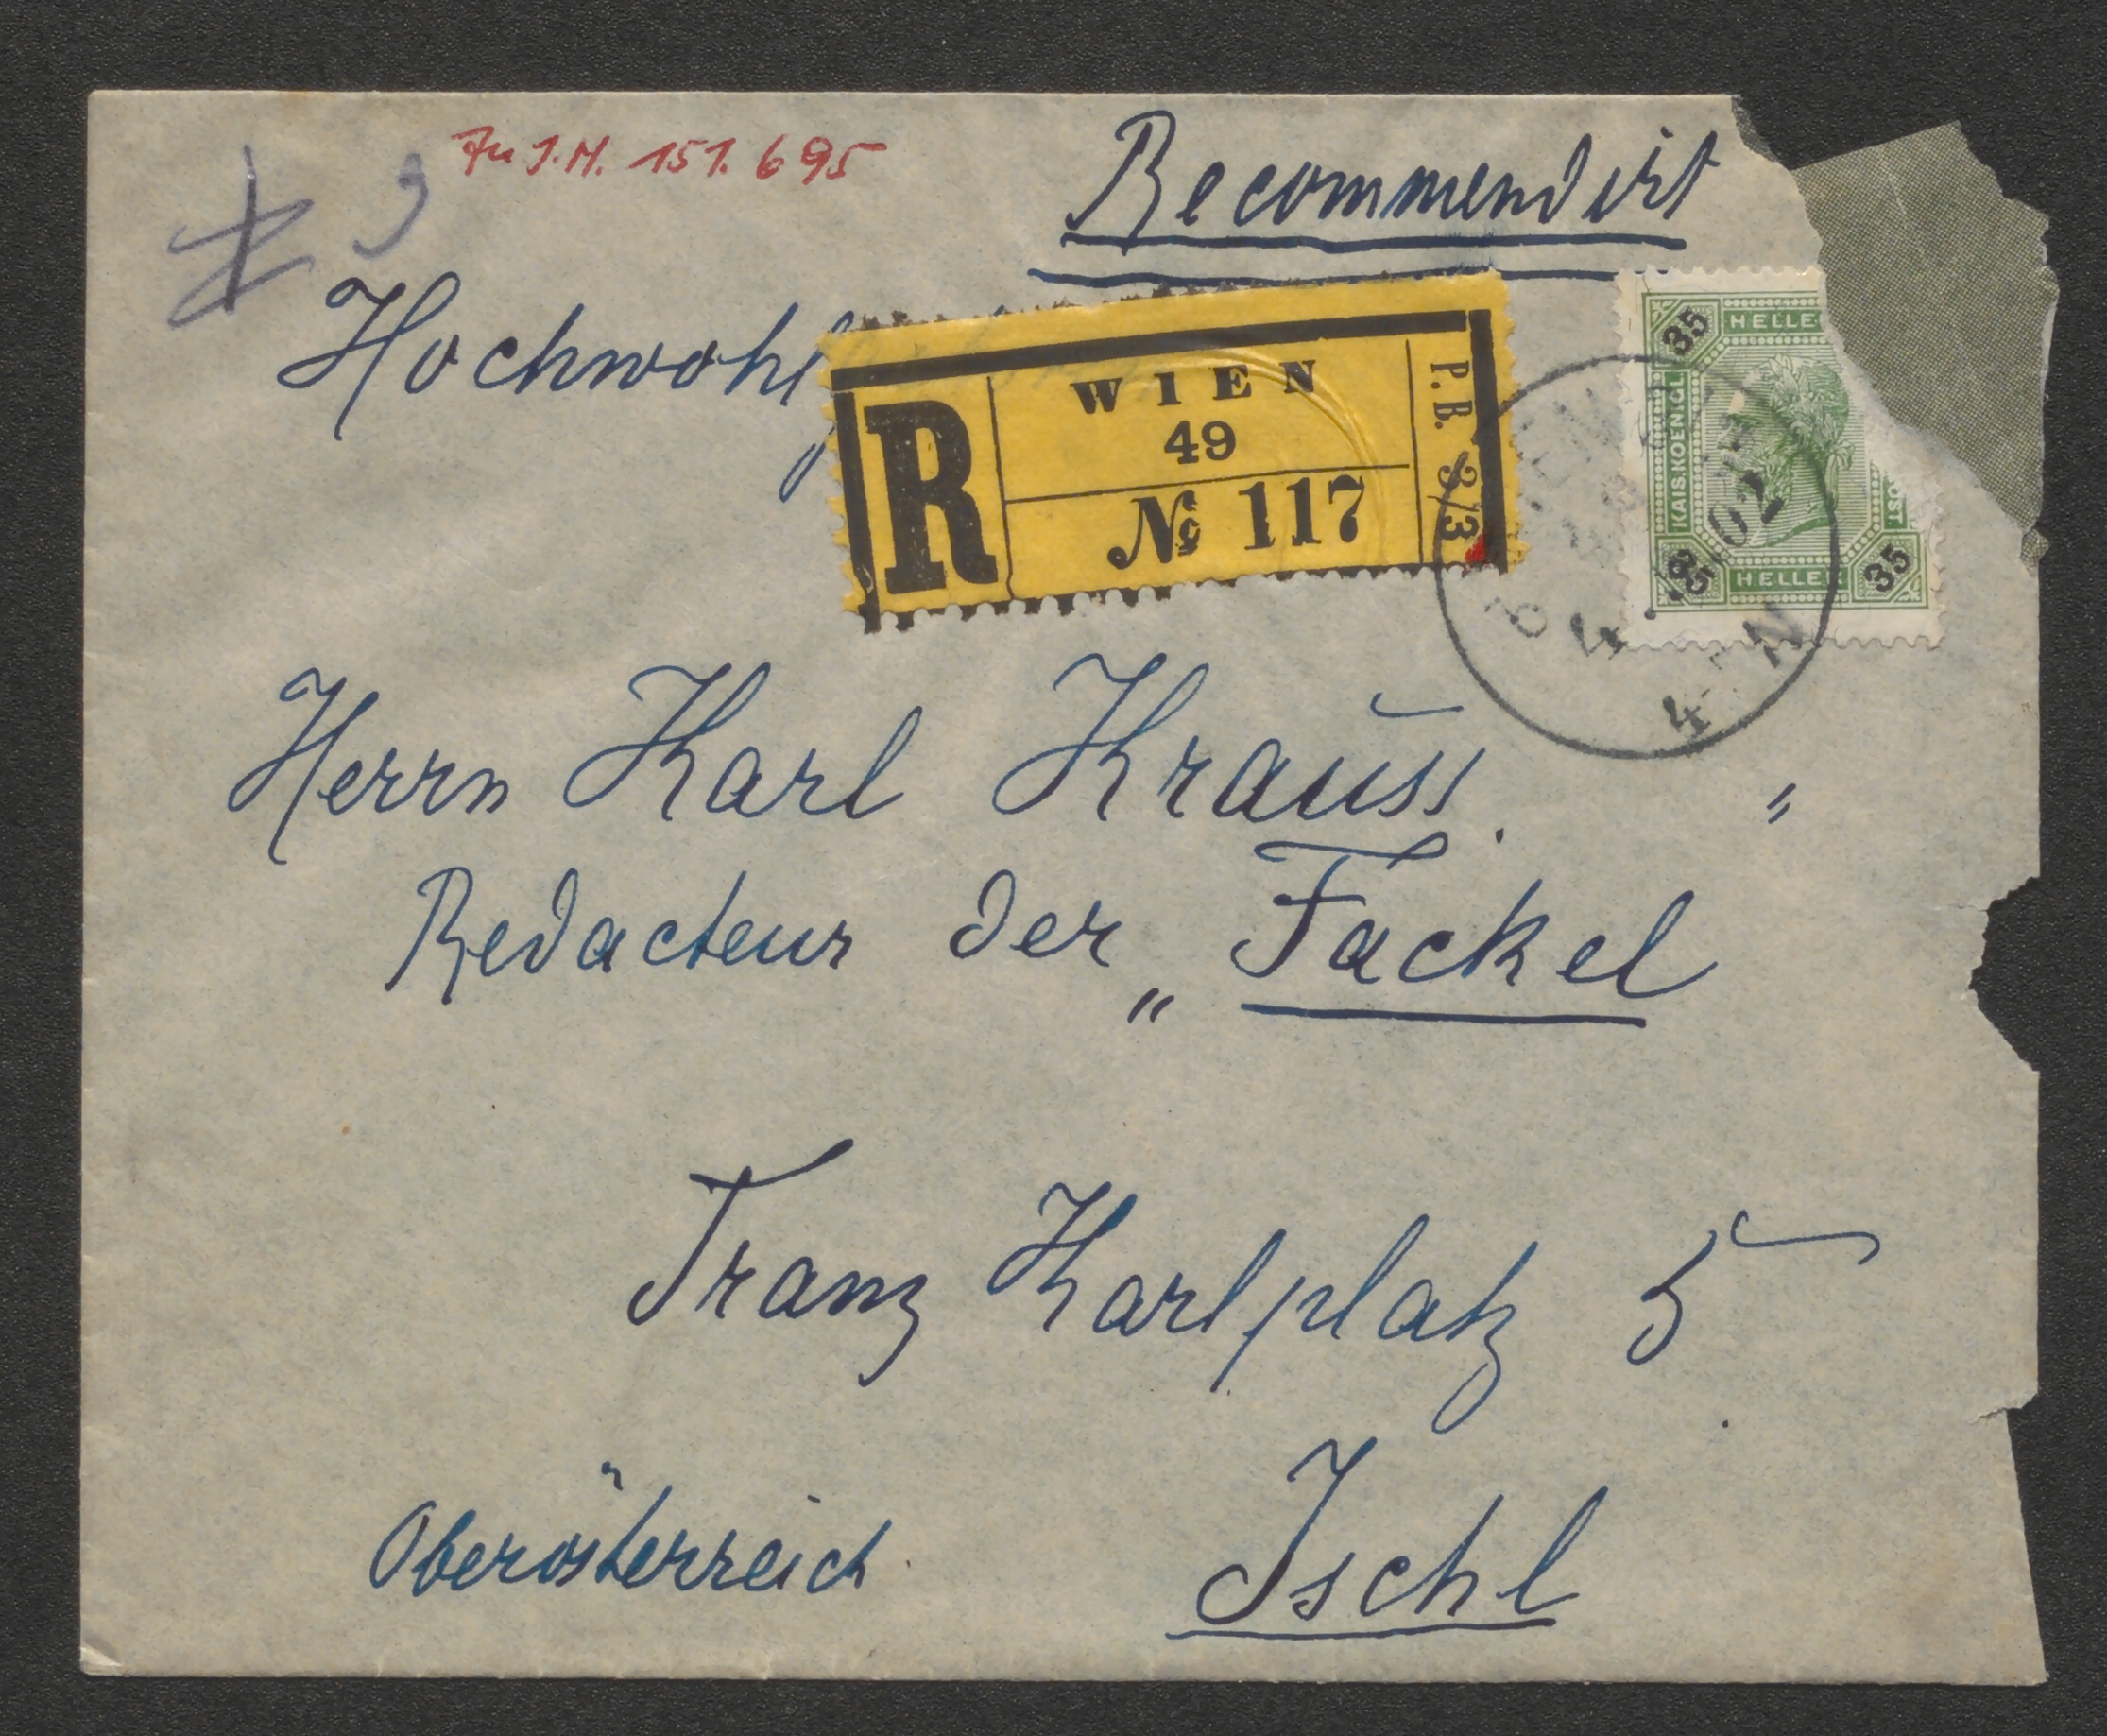 Zu J.N. 151.695
3
Recommendirt
Hochwohlg
R
WIEN
49
№ 117
P.B. 3/3
35 HELLE
KAIS.KOENIGL
35 HELLER 35
02
4-
N
Herrn Karl Krauss.
Redacteur der „Fackel"
Franz Karlplatz 5
Oberösterreich.
Ischl